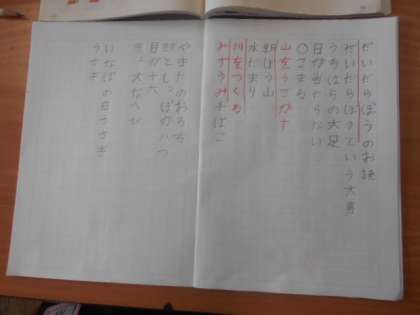 だいだらぼうのお話
だいだらぼうっていう大男
うちはらの大足
日が当たらない
〇こまる
山をうごかす
朝ぼう山
水たまり
川をつくる
みずうみ
やまたのおろち
頭としっぽが八つ
目が十六
大なへび
いなばの白うさぎ
うさぎ